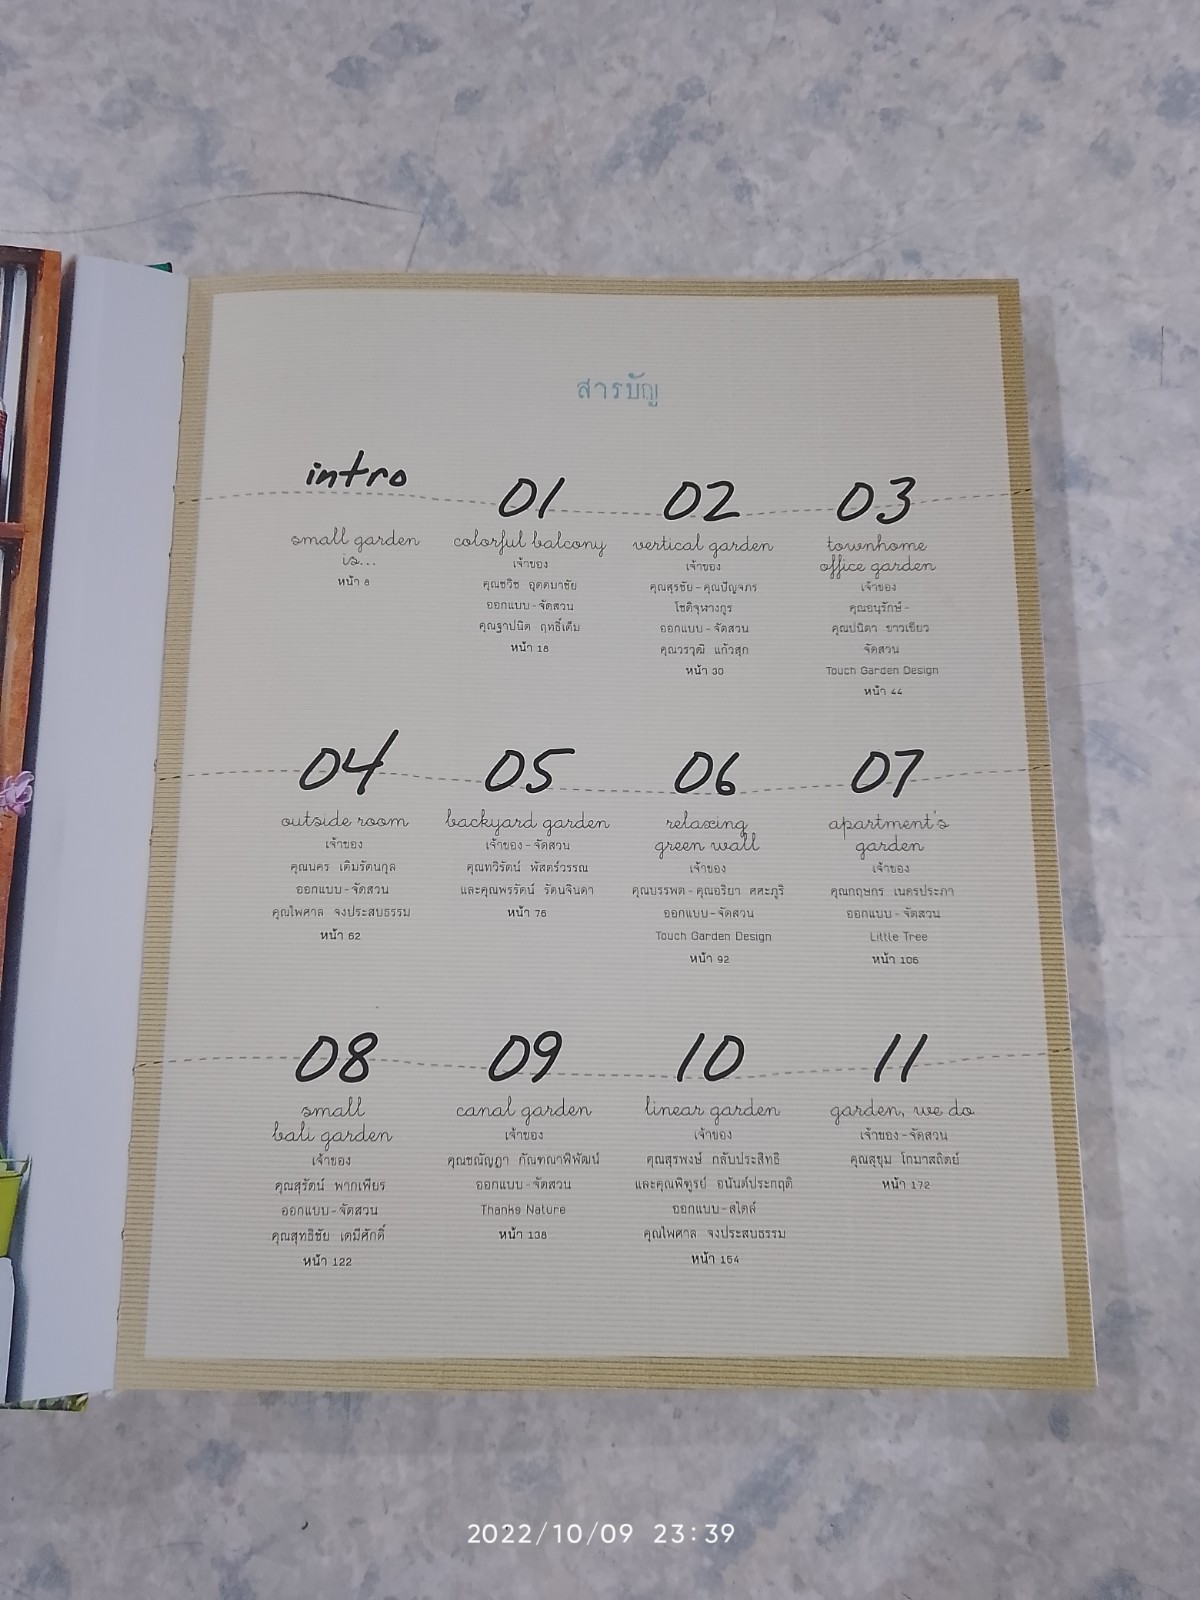 สารบัญ
intro
small garden
is...
หน้า 8
01
colorful balcony
เจ้าของ
คุณชวิช อุตตมาชัย
ออกแบบ-จัดสวน
คุณฐาปนิต ฤทธิ์เต็ม
หน้า 18
02
vertical garden
เจ้าของ
คุณสุรชัย-คุณปัญจภร
โชติจุฬางกูร
ออกแบบ-จัดสวน
คุณวรวุฒิ แก้วสุก
หน้า 30
03
townhome
office garden
เจ้าของ
คุณอนุรักษ์-
คุณปนิตา ขาวเขียว
จัดสวน
Touch Garden Design
หน้า 44
04
outside room
เจ้าของ
คุณนคร เติมรัตนกุล
ออกแบบ-จัดสวน
คุณไพศาล จงประสบธรรม
หน้า 62
05
backyard garden
เจ้าของ-จัดสวน
คุณทวิรัตน์ พัสตร์วรรณ
และคุณพรรัตน์ รัตนจินดา
หน้า 76
06
relaxing
green wall
เจ้าของ
คุณบรรพต-คุณอริยา ศศะภูริ
ออกแบบ-จัดสวน
Touch Garden Design
หน้า 92
07
apartment's
garden
เจ้าของ
คุณกฤษกร เนครประภา
ออกแบบ-จัดสวน
Little Tree
หน้า 106
08
small
bali garden
เจ้าของ
คุณสุรัตน์ พากเพียร
ออกแบบ-จัดสวน
คุณสุทธิชัย เตมีศักดิ์
หน้า 122
09
canal garden
เจ้าของ
คุณชณัญฎา กัณฑณาพิพัฒน์
ออกแบบ-จัดสวน
Thanks Nature
หน้า 138
10
linear garden
เจ้าของ
คุณสุรพงษ์ กลับประสิทธิ
และคุณพิฑูรย์ อนันต์ประกฤติ
ออกแบบ-สไตล์
คุณไพศาล จงประสบธรรม
หน้า 154
11
garden, we do
เจ้าของ-จัดสวน
คุณสุขุม โกมาสถิตย์
หน้า 172
2022/10/09 23:39